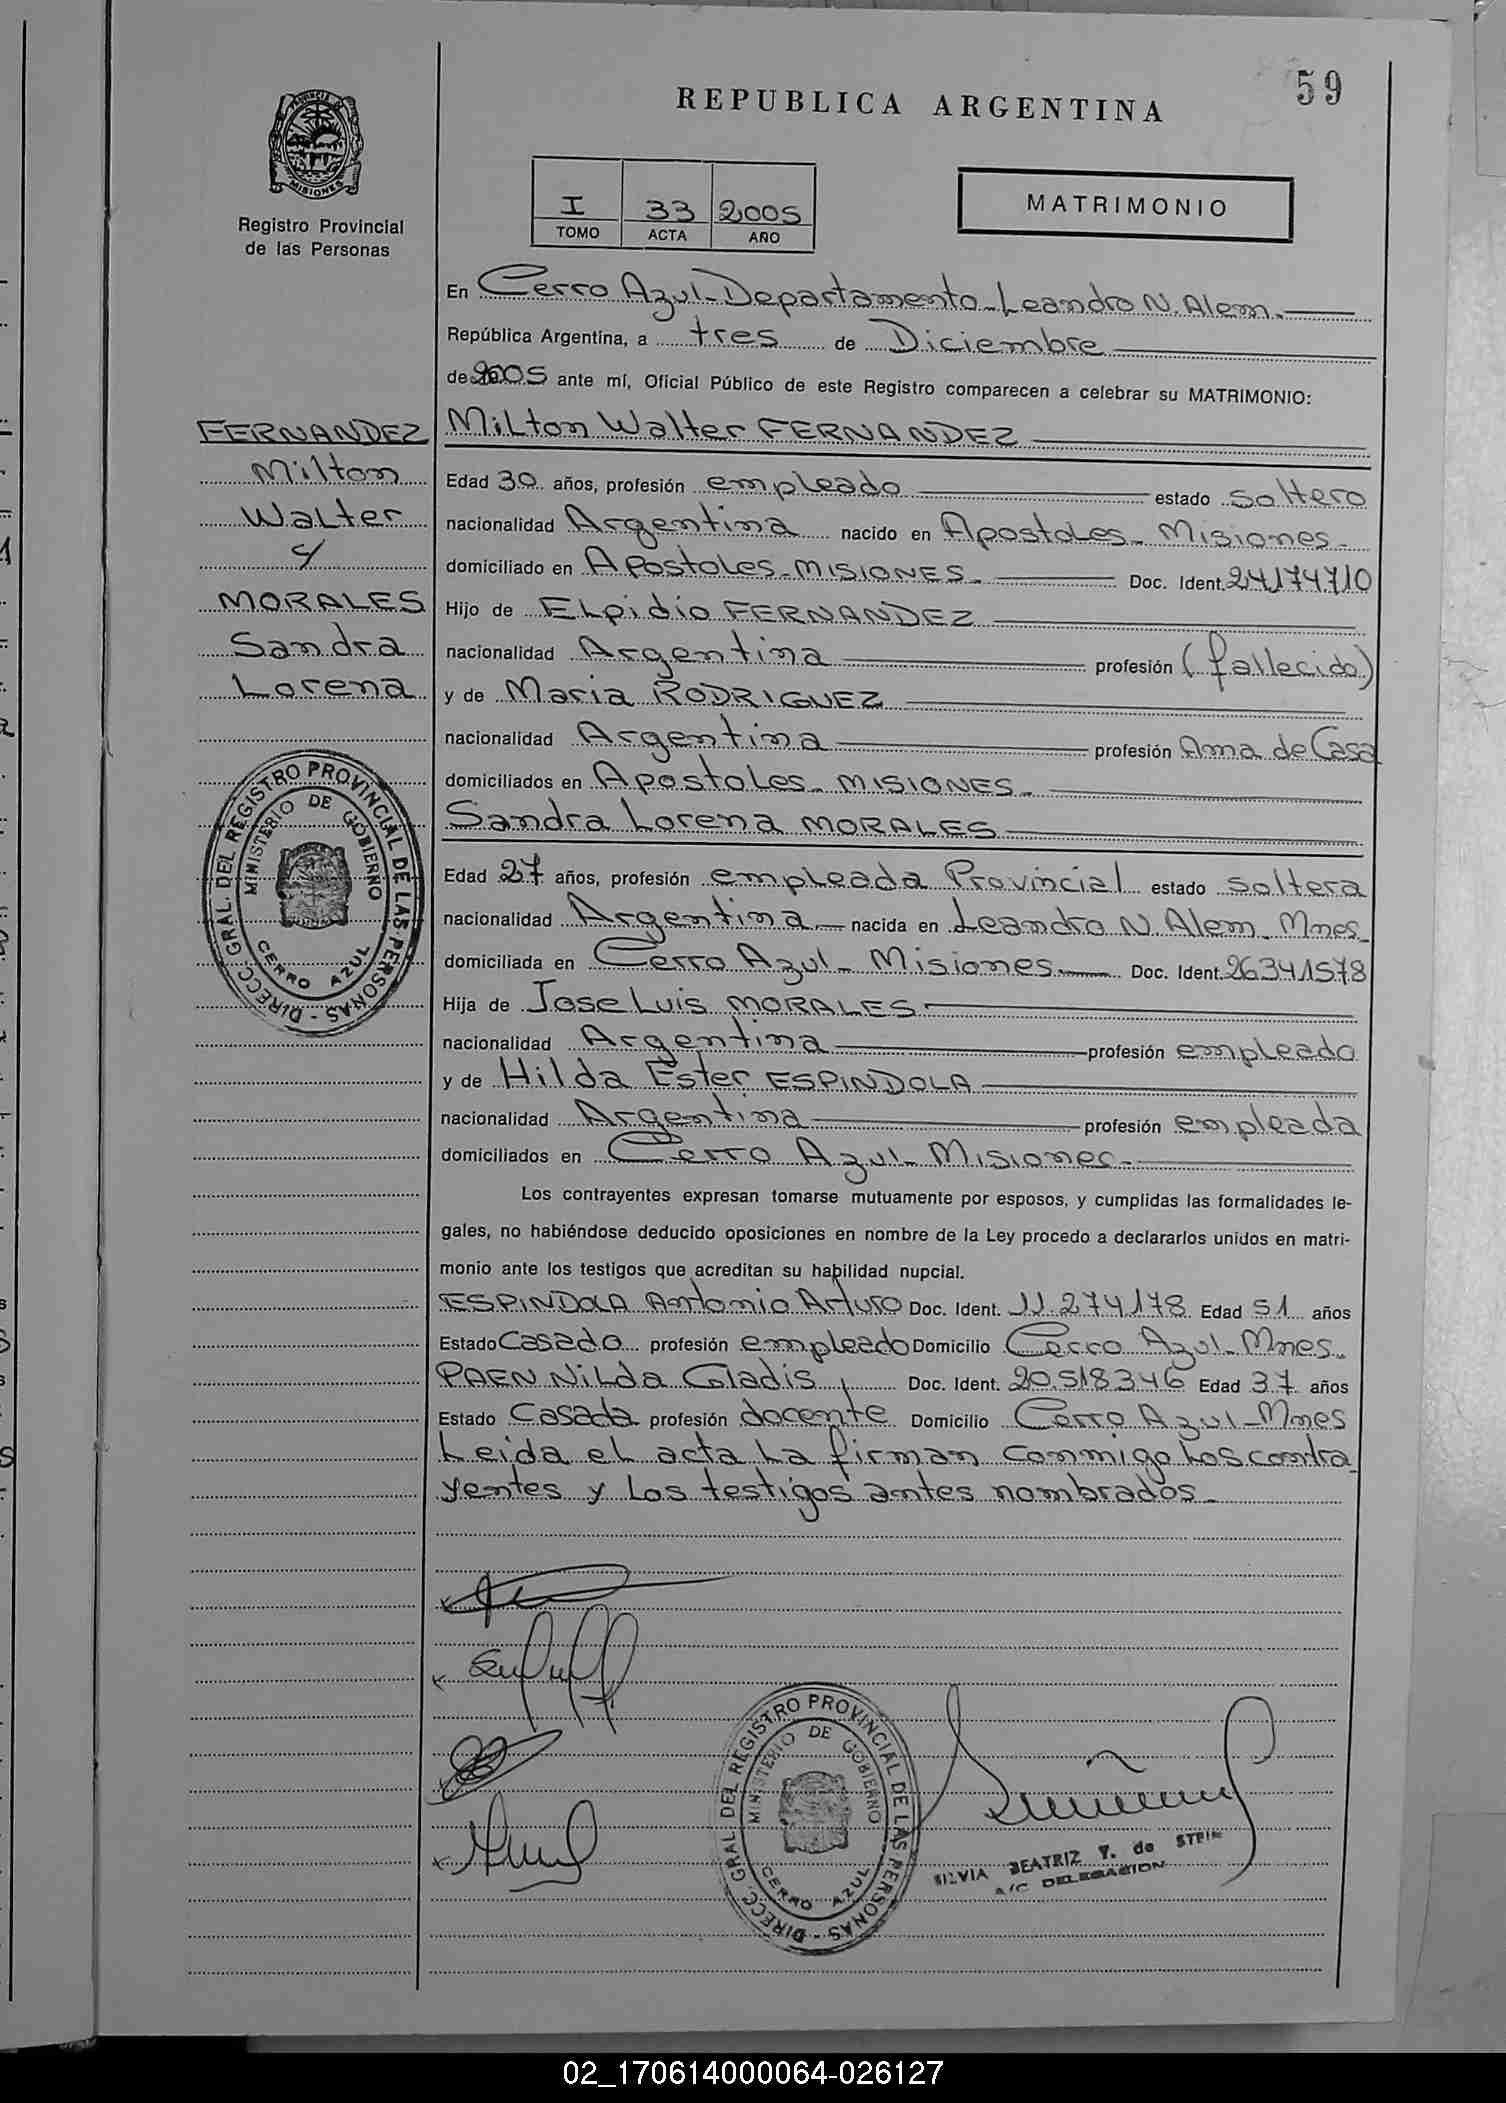 59
REPUBLICA ARGENTINA
PROVINCIA DE
MISIONES
Registro Provincial
de las Personas
I 33 2005
TOMO ACTA AÑO
MATRIMONIO
En Cerro Azul-Departamento-Leandro N. Alem.
República Argentina, a tres de Diciembre
de 2005 ante mí, Oficial Público de este Registro comparecen a celebrar su MATRIMONIO:
FERNANDEZ
Milton
Walter
y
MORALES
Sandra
Lorena
Milton Walter FERNANDEZ
Edad 30 años, profesión empleado estado soltero
nacionalidad Argentina nacido en Apostoles - Misiones -
domiciliado en Apostoles - MISIONES - Doc. Ident. 24174710
Hijo de ELpidio FERNANDEZ
nacionalidad Argentina profesión (fallecido)
y de Maria RODRIGUEZ
nacionalidad Argentina profesión Ama de Casa
domiciliados en Apostoles - MISIONES -
Sandra Lorena MORALES
Edad 27 años, profesión empleada Provincial estado soltera
nacionalidad Argentina nacida en Leandro N. Alem - Mnes -
domiciliada en Cerro Azul - Misiones Doc. Ident. 26341578
Hija de Jose Luis MORALES
nacionalidad Argentina profesión empleado
y de Hilda Ester ESPINDOLA
nacionalidad Argentina profesión empleada
domiciliados en Cerro Azul - Misiones -
Los contrayentes expresan tomarse mutuamente por esposos, y cumplidas las formalidades le-
gales, no habiéndose deducido oposiciones en nombre de la Ley procedo a declararlos unidos en matri-
monio ante los testigos que acreditan su habilidad nupcial.
ESPINDOLA Antonio Arturo Doc. Ident. 11.274178 Edad 51 años
Estado Casado profesión empleado Domicilio Cerro Azul - Mnes -
PAEN Nilda Gladis Doc. Ident. 20.518346 Edad 37 años
Estado Casada profesión docente Domicilio Cerro Azul - Mnes
Leida el acta La firman conmigo Los contra
yentes y Los testigos antes nombrados -
DIRECC. GRAL. DEL REGISTRO PROVINCIAL DE LAS PERSONAS -
MINISTERIO DE GOBIERNO
CERRO AZUL
DIRECC. GRAL. DEL REGISTRO PROVINCIAL DE LAS PERSONAS -
MINISTERIO DE GOBIERNO
CERRO AZUL
SILVIA BEATRIZ Y. de STEIN
A/C DELEGACION
02_170614000064-026127